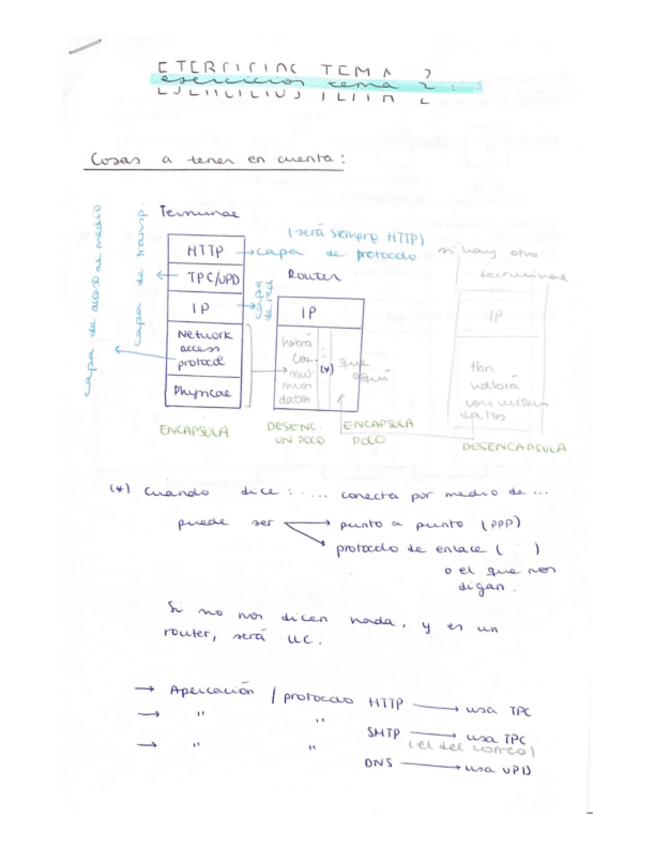 EJERCICIOS TEMA 2
ejercicios tema 2 :
Cosas a tener en cuenta :
capa de acceso al medio
capa de transp.
Terminal
HTTP
TPC/UPD
IP
Network
access
protocol
Physical
ENCAPSULA
(será siempre HTTP)
capa de protocolo
capa
de red
Router
IP
habrá
mis
mos
datos
(*)
que
aquí
DESENC.
UN POCO
ENCAPSULA
POCO
si hay otro
terminal
IP
habrá
los mismos
datos
DESENCAPSULA
(*) Cuando dice : .... conecta por medio de ...
puede ser
punto a punto (PPP)
protocolo de enlace ( )
o el que nos
digan.
Si no nos dicen nada, y es un
router, será LLC.
→ Aplicación / protocolo HTTP → usa TPC
→ " " SMTP → usa TPC
(el del correo)
→ " " DNS → usa UPD